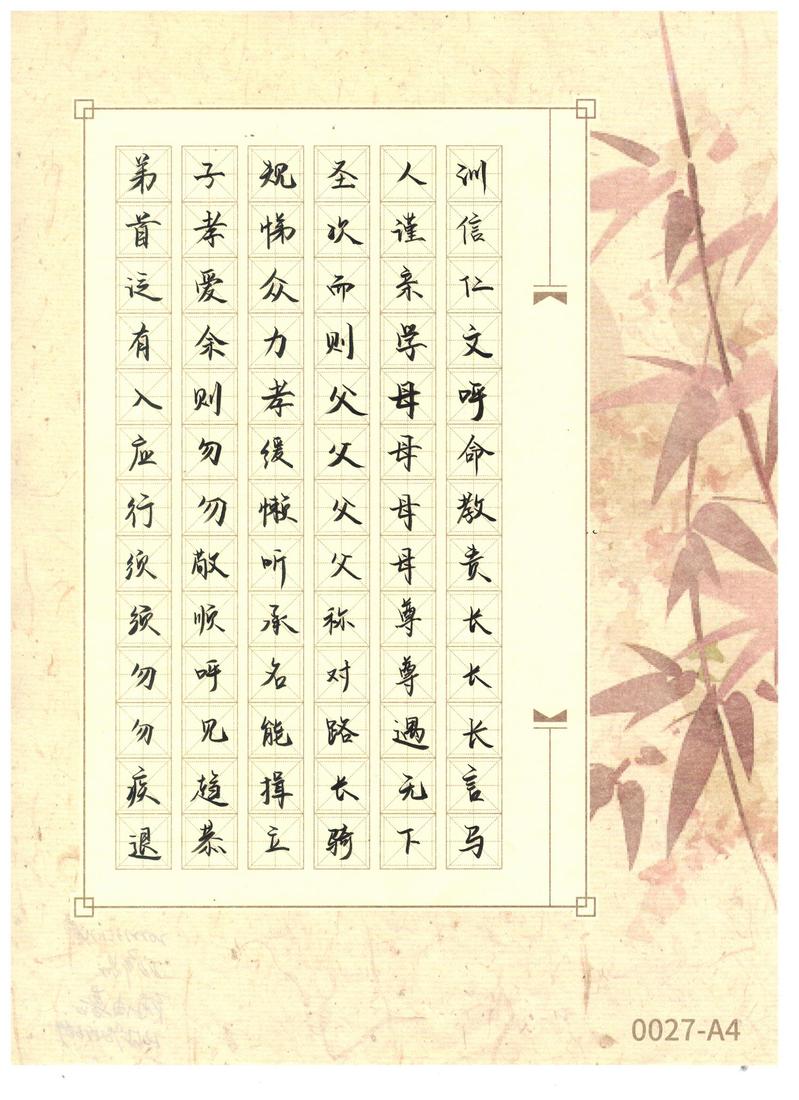 弟子规圣人训
首孝悌次谨信
泛爱众而亲仁
有余力则学文
入则孝父母呼
应勿缓父母命
行勿懒父母教
须敬听父母责
须顺承称尊长
勿呼名对尊长
勿见能路遇长
疾趋揖长无言
退恭立骑下马
0027-A4